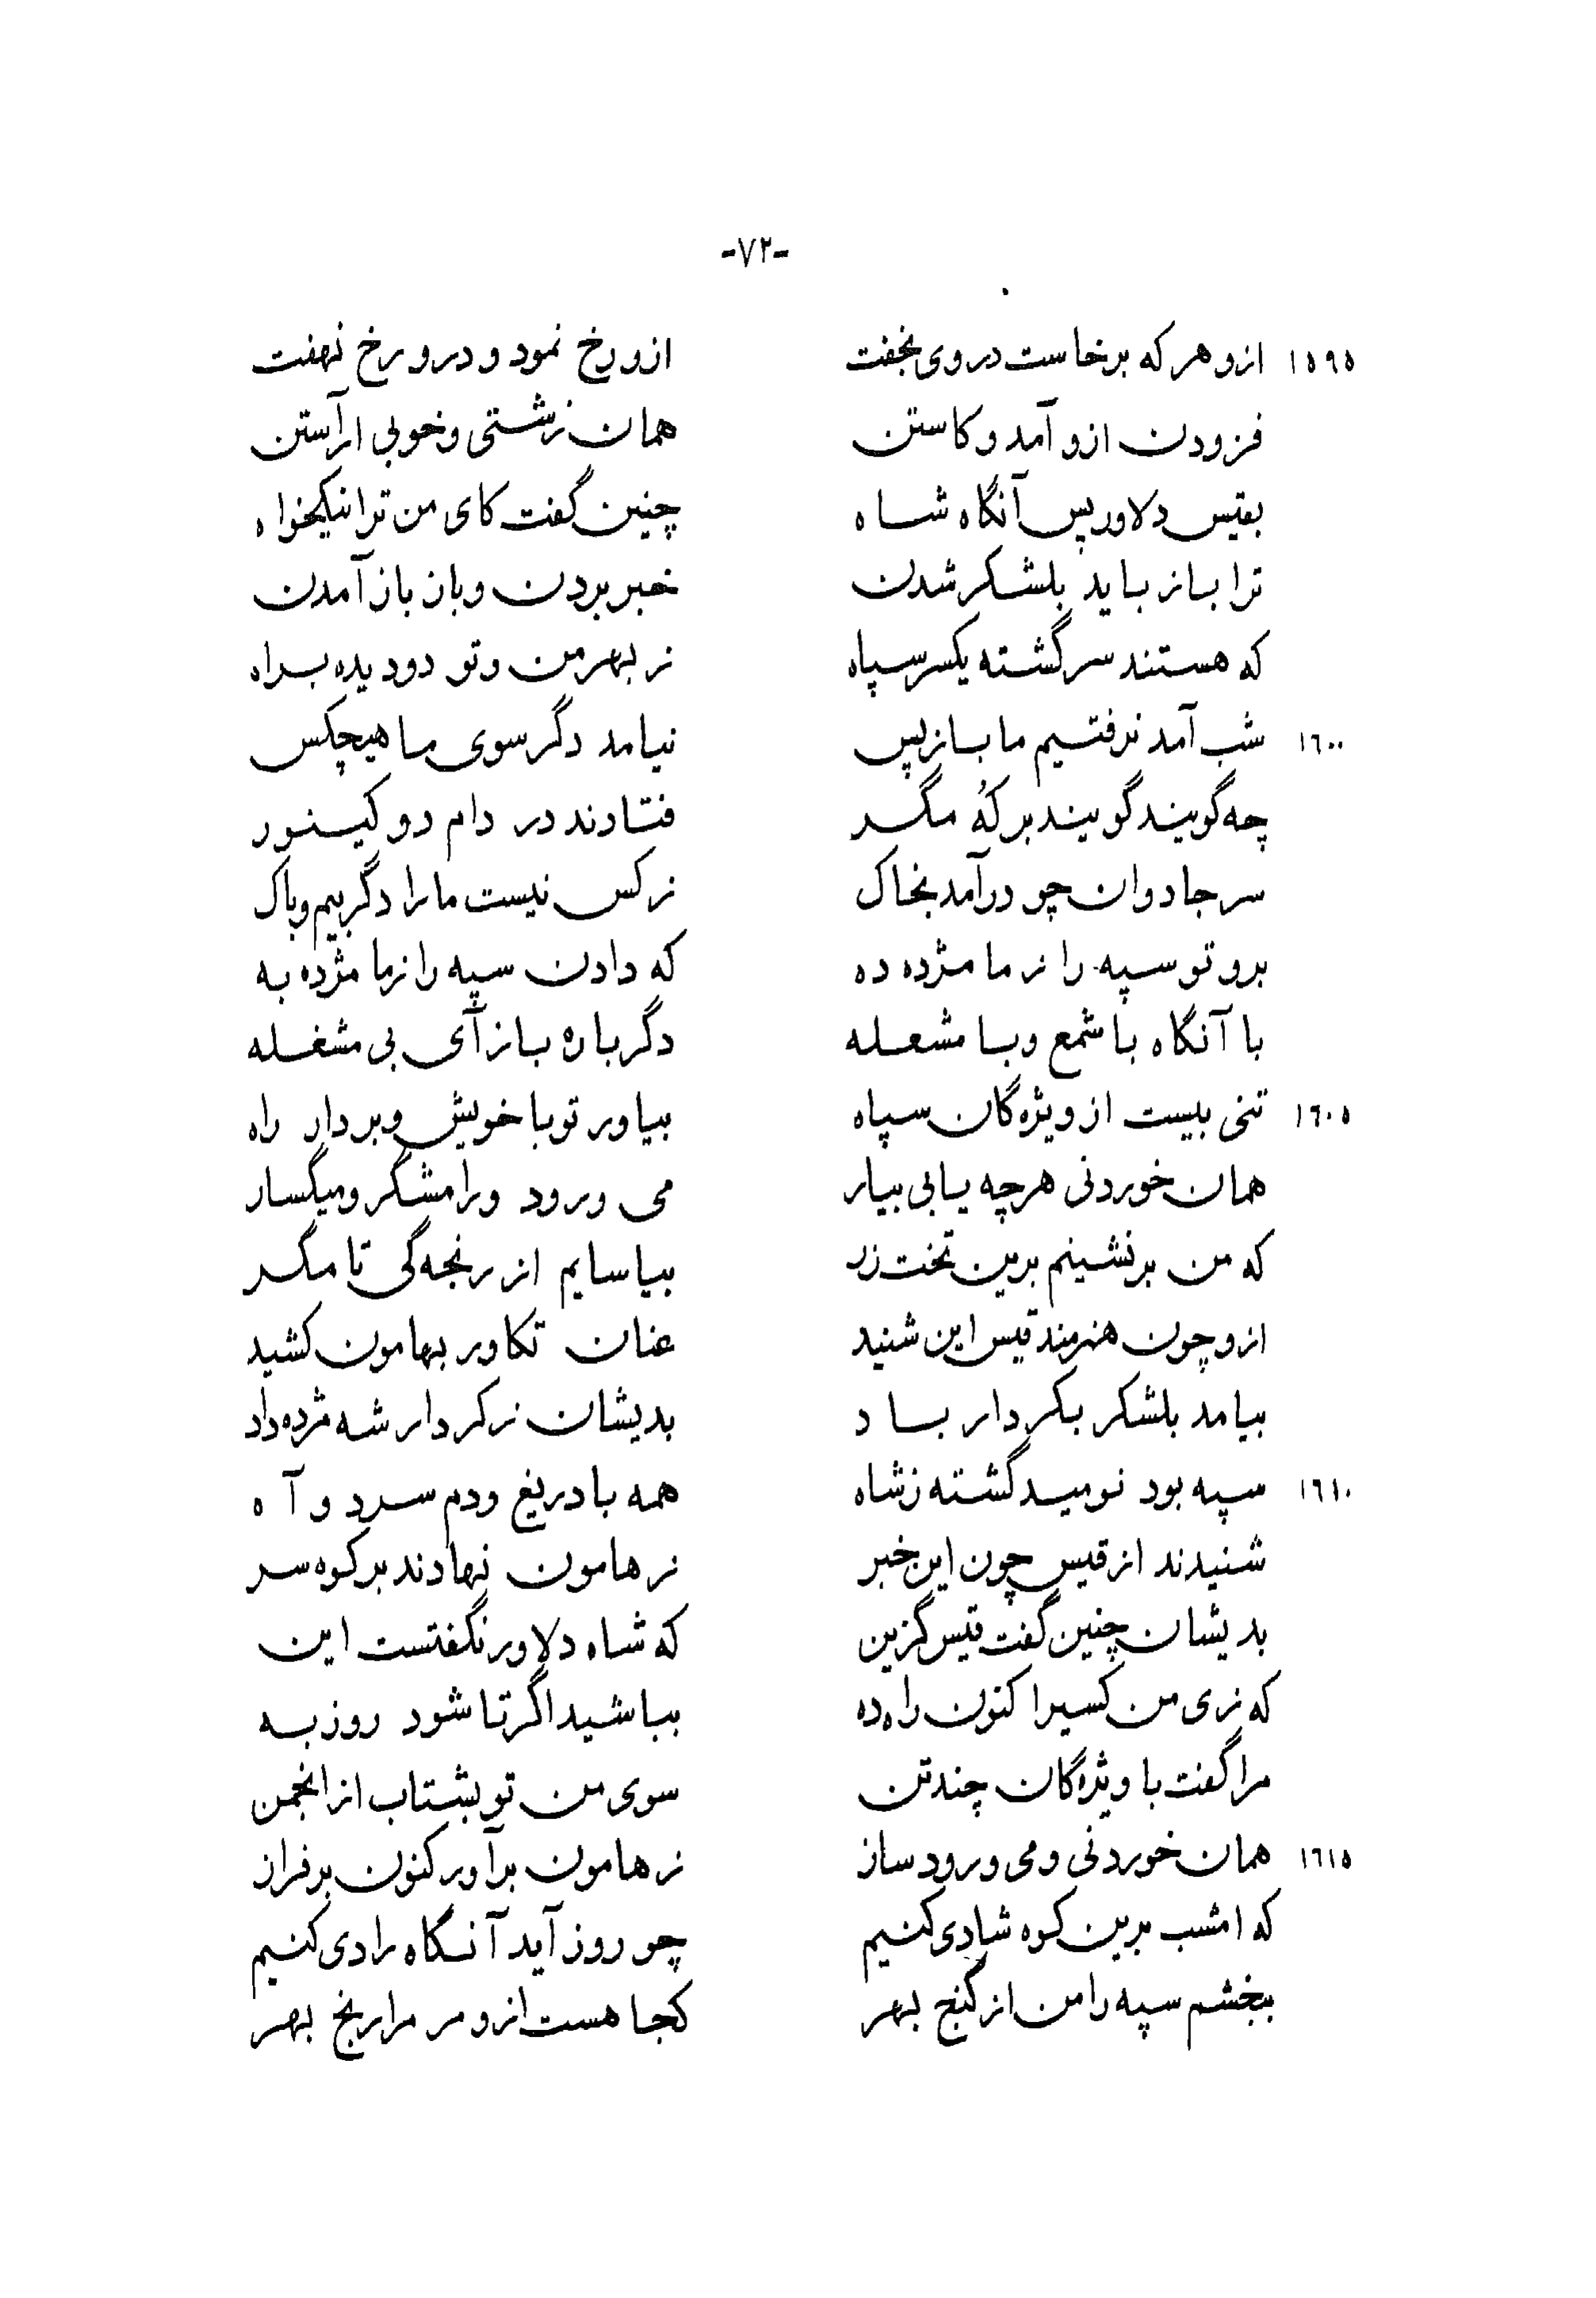 -۷۲-
۱۵۹۵ ازو هر که برخاست در وی بخفت ازو رخ نمود و درو رخ نهفت
فزودن ازو آمد و کاستن همان زشتی و خوبی ار آستن
بقیس دلاور پس آنگاه شاه چنین گفت کای من ترا نیکخواه
ترا باز باید بلشکر شدن خبر بردن و باز باز آمدن
که هستند سرگشته یکسر سپاه ز بهر من و تو دو دیده براه
۱۶۰۰ شب آمد نرفتیم ما باز پس نیامد دگر سوی ما هیچکس
چه گویند گویند بر کُه مگر فتادند در دام دو کینور
سر جادوان چو درآمد بخاک ز کس نیست ما را دگر بیم و باک
برو تو سپه را ز ما مژده ده که دادن سپه را ز ما مژده به
با آنگاه با شمع و با مشعله دگر باره باز آی بی مشغله
۱۶۰۵ تنی بیست از ویژه‌گان سپاه بیاور تو با خویش و بردار راه
همان خوردنی هر چه یابی بیار می و رود و رامشگر و میگسار
که من بر نشینم برین تخت زر بیاسایم از رنجه‌گی تا مگر
ازو چون هنرمند قیس این شنید عنان تکاور بهامون کشید
بیامد بلشکر بکردار باد بدیشان ز کردار شه مژده داد
۱۶۱۰ سپه بود نومید گشته ز شاه همه با دریغ و دم سرد و آه
شنیدند از قیس چون این خبر ز هامون نهادند بر کوه سر
بدیشان چنین گفت قیس گزین که شاه دلاور نگفتست این
که زی من کسیرا کنون راه ده بباشید اگر تا شود روز به
مرا گفت با ویژه‌گان چند تن سوی من تو بشتاب از انجمن
۱۶۱۵ همان خوردنی و می و رود ساز ز هامون برآور کنون بر فراز
که امشب برین کوه شادی کنیم چو روز آید آنگاه رادی کنیم
ببخشم سپه را من از گنج بهر کجا هست ازو مر مرا رنج بهر